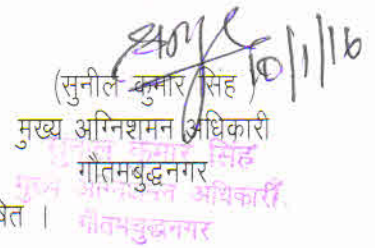 10/1/16
(सुनील कुमार सिंह)
मुख्य अग्निशमन अधिकारी
गौतमबुद्धनगर
सुनील कुमार सिंह
मुख्य अग्निशमन अधिकारी
गौतमबुद्धनगर